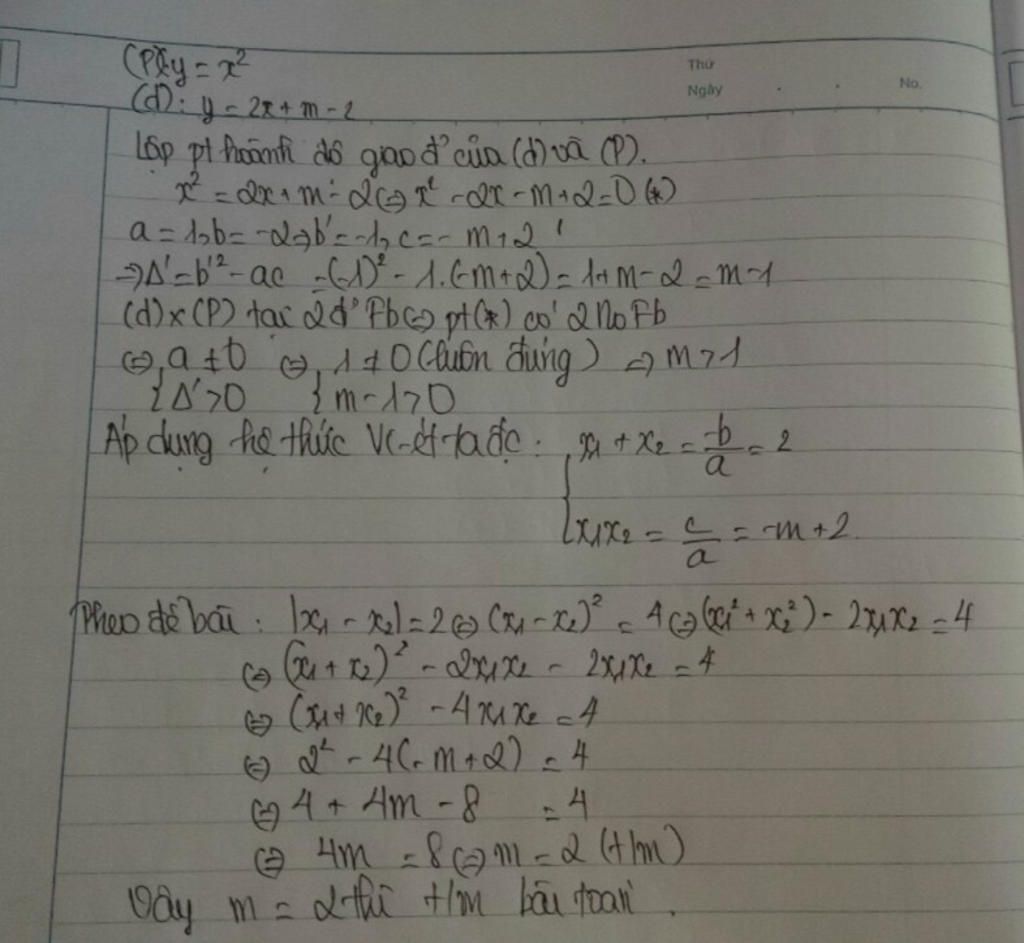 (P): y = x²
Thứ
(d): y = 2x + m - 2
Ngày . . No.
Lập pt hoành độ giao đ' của (d) và (P).
x² = 2x + m - 2 ⇔ x² - 2x - m + 2 = 0 (*)
a = 1, b = -2 ⇒ b' = -1, c = - m + 2
⇒ Δ' = b'² - ac = (-1)² - 1.(-m+2) = 1 + m - 2 = m - 1
(d) x (P) tại 2 đ' Fb ⇔ pt(*) có 2 No Fb
⇔ { a ≠ 0 ⇔ { 1 ≠ 0 (luôn đúng) ⇒ m > 1
Δ' > 0 m - 1 > 0
Áp dụng hệ thức Vi-ét ta đc: { x₁ + x₂ = -b/a = 2
x₁x₂ = c/a = -m + 2
Theo đề bài: |x₁ - x₂| = 2 ⇔ (x₁ - x₂)² = 4 ⇔ (x₁² + x₂²) - 2x₁x₂ = 4
⇔ (x₁ + x₂)² - 2x₁x₂ - 2x₁x₂ = 4
⇔ (x₁ + x₂)² - 4x₁x₂ = 4
⇔ 2² - 4(-m + 2) = 4
⇔ 4 + 4m - 8 = 4
⇔ 4m = 8 ⇔ m = 2 (t/m)
Vậy m = 2 thì t/m bài toán.